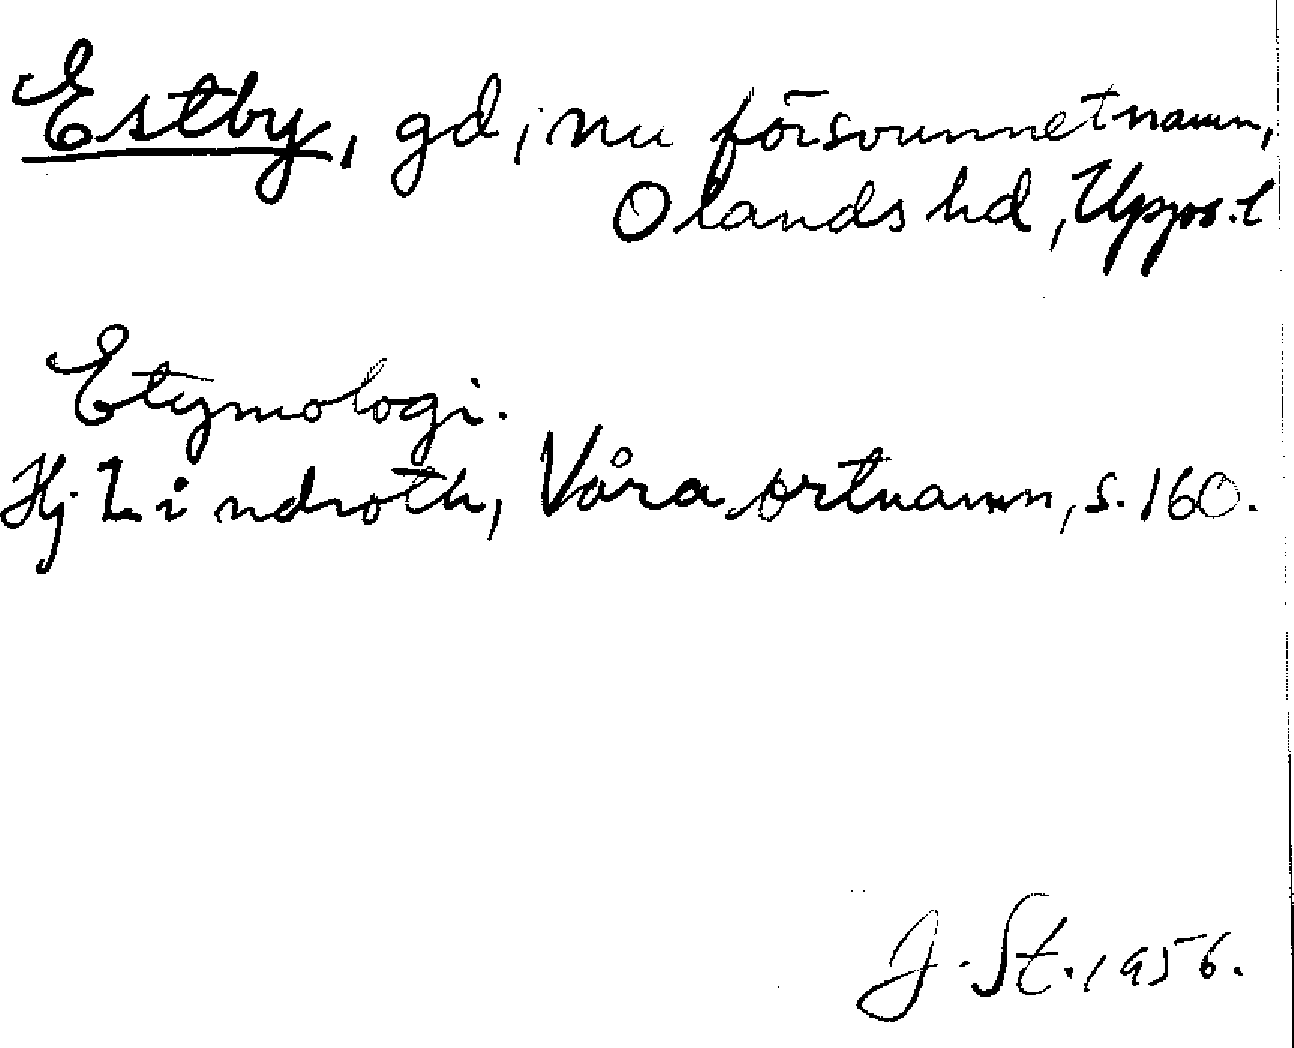 Estby, gd, nu försvunnet namn,
Olands hd, Upps. l
Etymologi.
Hj. Lindroth, Våra ortnamn, s. 160.
J. St. 1956.